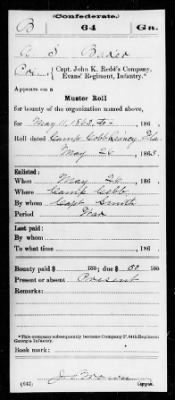 (Confederate.)
B 64 Ga.
A S Baker
Capt. John K. Redd's Company,
Evans' Regiment, Infantry.*
Appears on a
Muster Roll
for bounty of the organization named above,
for May 11, 1863, to 186 ,
Roll dated Camp Cobb Quincy Fla
May 26, 1863.
Enlisted:
When May 26, 186
Where Camp Cobb
By whom Capt. Smith
Period War
Last paid:
By whom
To what time , 186 .
Bounty paid $ 100; due $ 50 100
Present or absent Present
Remarks:
*This company subsequently became Company F, 64th Regiment
Georgia Infantry.
Book mark:
(642) Copyist.